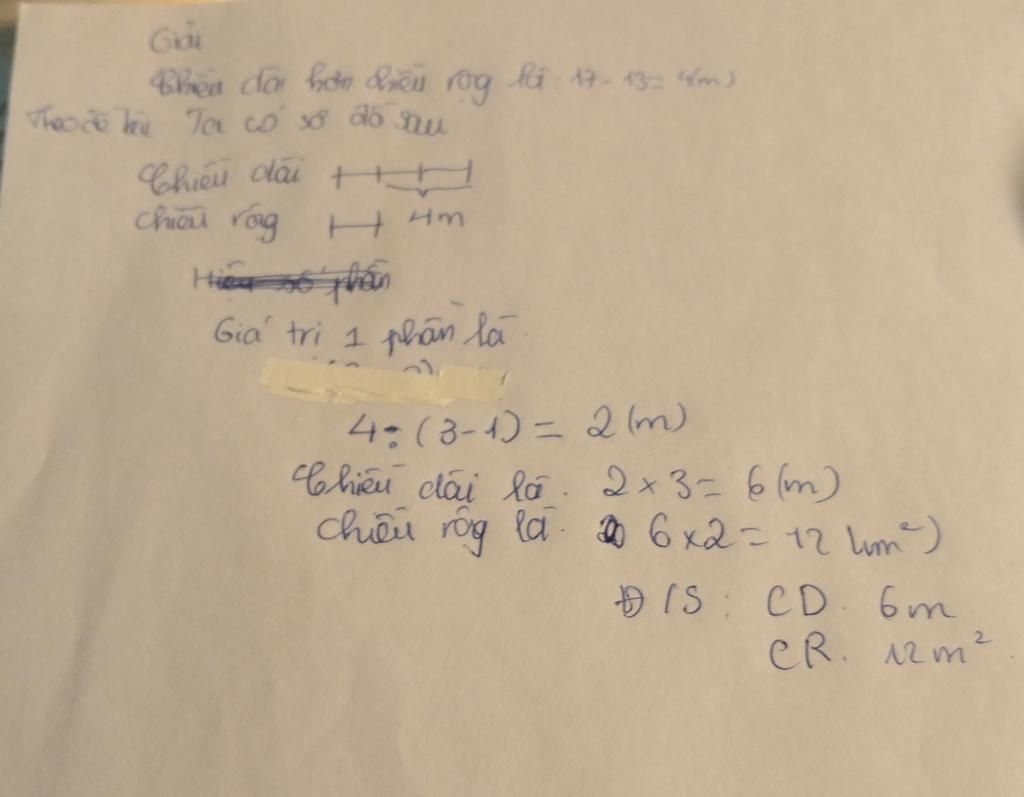 Giải
Chiều dài hơn chiều rộg là: 17 - 13 = 4(m)
Theo đề bài Ta có sơ đồ sau
Chiều dài
4m
chiều rộg
Giá trị 1 phần là
4 : (3-1) = 2 (m)
Chiều dài là. 2 × 3 = 6 (m)
chiều rộg là. 6 × 2 = 12 (m²)
Đ/S : CD. 6m
CR. 12m²